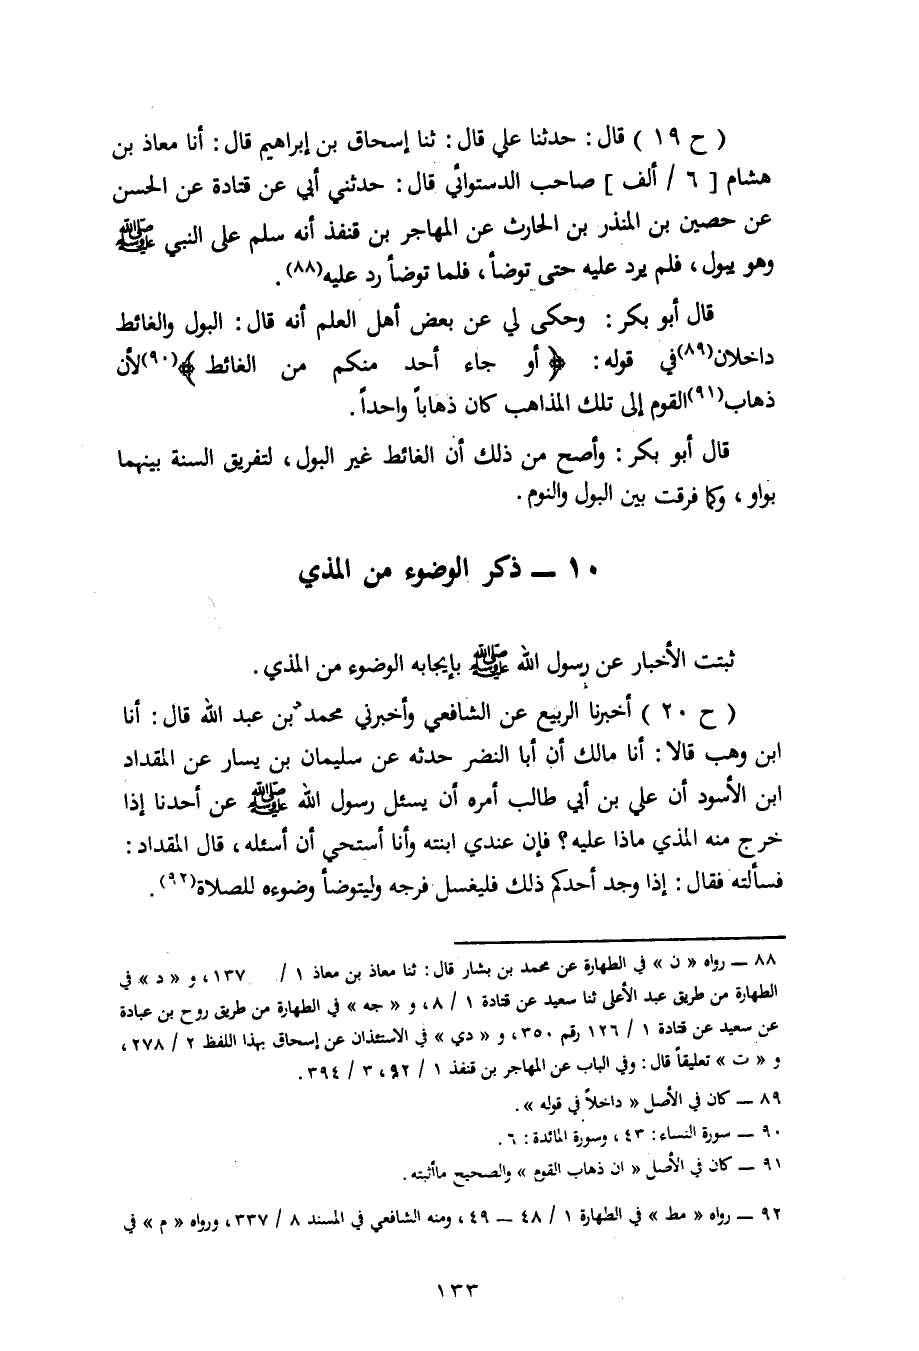 ( ح ١٩ ) قال : حدثنا علي قال : ثنا إسحاق بن إبراهيم قال : أنا معاذ بن
هشام [ ٦ / ألف ] صاحب الدستوائي قال : حدثني أبي عن قتادة عن الحسن
عن حصين بن المنذر بن الحارث عن المهاجر بن قنفذ أنه سلم على النبي ﷺ
وهو يبول ، فلم يرد عليه حتى توضأ ، فلما توضأ رد عليه(٨٨) .
قال أبو بكر : وحكى لي عن بعض أهل العلم أنه قال : البول والغائط
داخلان(٨٩)في قوله : ﴿ أو جاء أحد منكم من الغائط ﴾(٩٠)لأن
ذهاب(٩١)القوم إلى تلك المذاهب كان ذهاباً واحداً .
قال أبو بكر : وأصح من ذلك أن الغائط غير البول ، لتفريق السنة بينهما
بواو ، وكما فرقت بين البول والنوم .
١٠ — ذكر الوضوء من المذي
ثبتت الأخبار عن رسول الله ﷺ بإيجابه الوضوء من المذي .
( ح ٢٠ ) أخبرنا الربيع عن الشافعي وأخبرني محمد بن عبد الله قال : أنا
ابن وهب قالا : أنا مالك أن أبا النضر حدثه عن سليمان بن يسار عن المقداد
ابن الأسود أن علي بن أبي طالب أمره أن يسئل رسول الله ﷺ عن أحدنا إذا
خرج منه المذي ماذا عليه ؟ فإن عندي ابنته وأنا أستحي أن أسئله ، قال المقداد :
فسألته فقال : إذا وجد أحدكم ذلك فليغسل فرجه وليتوضأ وضوءه للصلاة(٩٢) .
٨٨ — رواه « ن » في الطهارة عن محمد بن بشار قال : ثنا معاذ بن معاذ ١ / ١٣٧ ، و « د » في
الطهارة من طريق عبد الأعلى ثنا سعيد عن قتادة ١ / ٨ ، و « جه » في الطهارة من طريق روح بن عبادة
عن سعيد عن قتادة ١ / ١٢٦ رقم ٣٥٠ ، و « دي » في الاستئذان عن إسحاق بهذا اللفظ ٢ / ٢٧٨ ،
و « ت » تعليقاً قال : وفي الباب عن المهاجر بن قنفذ ١ / ٩٢ ، ٣ / ٣٩٤ .
٨٩ — كان في الأصل « داخلاً في قوله » .
٩٠ — سورة النساء : ٤٣ ، وسورة المائدة : ٦ .
٩١ — كان في الأصل « ان ذهاب القوم » والصحيح ماأثبته .
٩٢ — رواه « مط » في الطهارة ١ / ٤٨ — ٤٩ ، ومنه الشافعي في المسند ٨ / ٣٣٧ ، ورواه « م » في
١٣٣